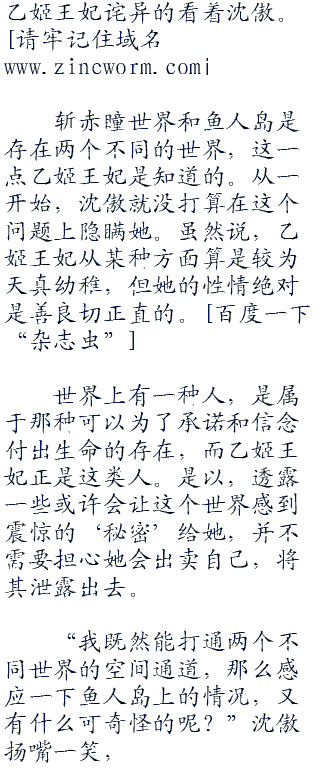 乙姬王妃诧异的看着沈傲。
[请牢记住域名
www.zincworm.com|
斩赤瞳世界和鱼人岛是
存在两个不同的世界，这一
点乙姬王妃是知道的。从一
开始，沈傲就没打算在这个
问题上隐瞒她。虽然说，乙
姬王妃从某种方面算是较为
天真幼稚，但她的性情绝对
是善良切正直的。[百度一下
“杂志虫”]
世界上有一种人，是属
于那种可以为了承诺和信念
付出生命的存在，而乙姬王
妃正是这类人。是以，透露
一些或许会让这个世界感到
震惊的‘秘密’给她，并不
需要担心她会出卖自己，将
其泄露出去。
“我既然能打通两个不
同世界的空间通道，那么感
应一下鱼人岛上的情况，又
有什么可奇怪的呢？”沈傲
扬嘴一笑，